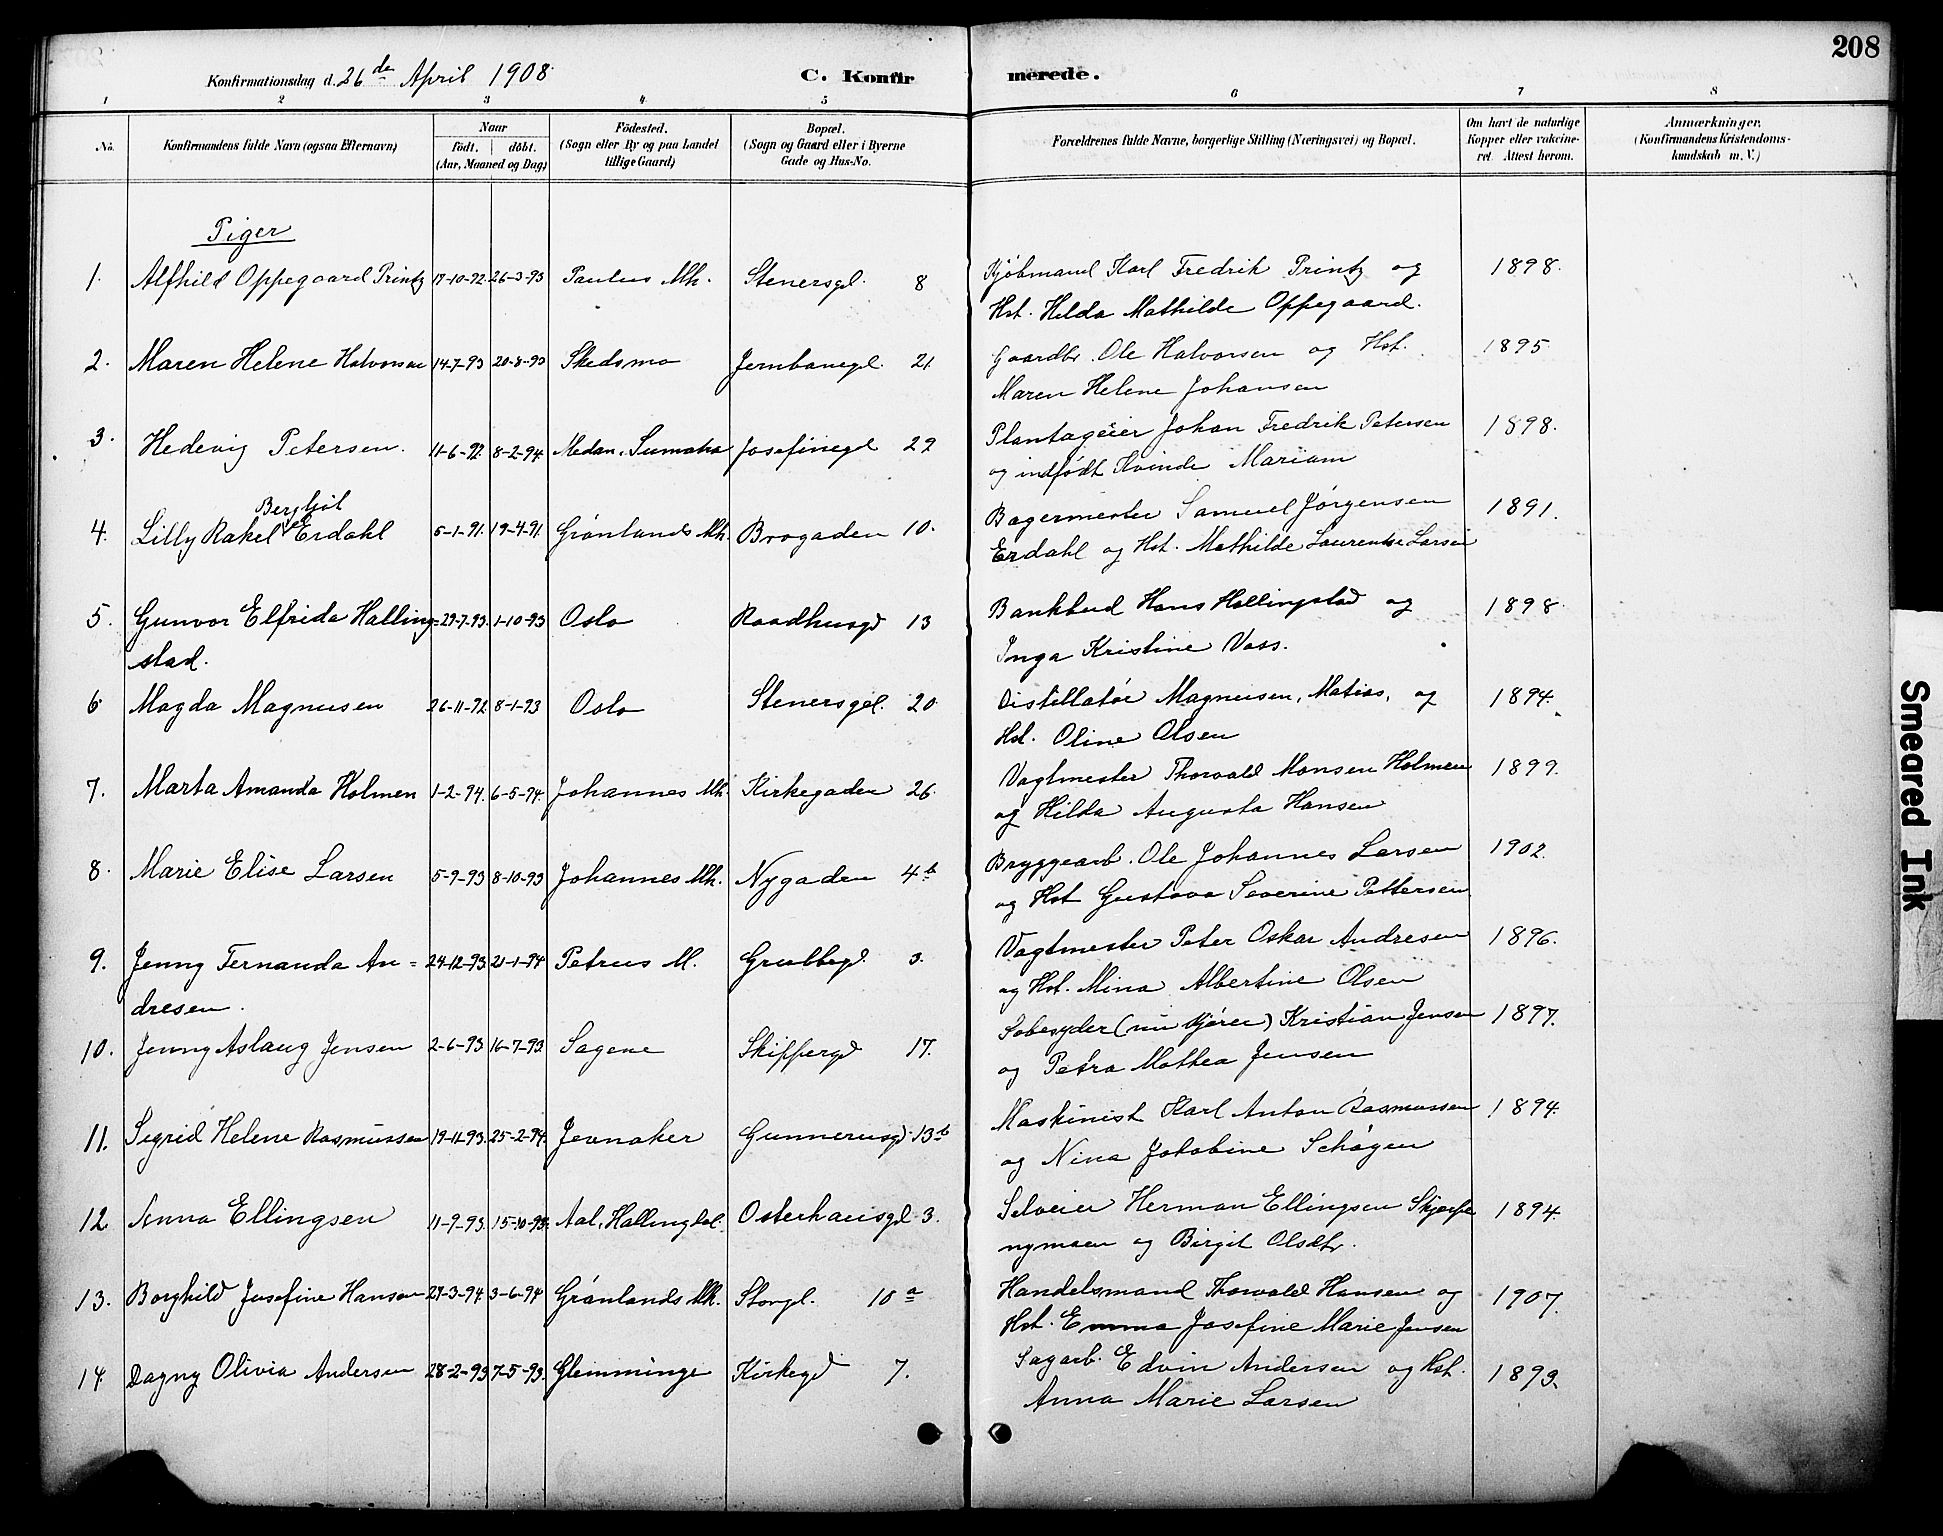 208
Konfirmationsdag d. 26de April 1908.
C. Konfir merede.
1 2 3 4 5 6 7 8
No. Konfirmandens fulde Navn (ogsaa Efternavn) Naar født. døbt. (Aar, Maaned og Dag) Födested. (Sogn eller By og paa Landet tillige Gaard) Bopæl. (Sogn og Gaard eller i Byerne Gade og Hus-No. Forældrenes fulde Navne, borgerlige Stilling (Næringsvei) og Bopæl. Om havt de naturlige Kopper eller vakcineret. Attest herom. Anmærkninger. (Konfirmandens Kristendomskundskab m. V.)
Piger
1. Alfhild Oppegaard Printz 17-10-92. 26-3-93 Paulus Mk. Stenersgd. 8 Kjøbmand Karl Fredrik Printz og 1898.
Hst. Hilda Mathilde Oppegaard.
2. Maren Helene Halvorsen 14-7-93 20-8-93 Skedsmo Jernbanegd. 21. Gaardbr. Ole Halvorsen og Hst. 1895
Maren Helene Johansen
3. Hedevig Petersen. 11-6-92. 8-2-94. Medan, Sumatra Josefinegd 29 Plantageeier Johan Fredrik Petersen 1898.
og indfødt Kvinde Mariam
Bergljöt
4. Lilly Rakel Erdahl 5-1-91. 19-4-91. Grønlands Mk. Brogaden 10. Bagermester Samuel Jørgensen 1891.
Erdahl og Hst. Mathilde Laurentse Larsen
5. Gunvor Elfrida Halling= 29-7-93. 1-10-93 Oslo Raadhusgd 13 Bankbud Hans Hallingstad og 1898
stad. Inga Kristine Voss.
6. Magda Magnusen 26-11-92 8-1-93 Oslo Stenersgd. 20. Distillatør Magnusen, Matias, og 1894.
Hst. Oline Olsen
7. Marta Amanda Holmen 1-2-94. 6-5-94. Johannes Mk. Kirkegaden 26. Vagtmester Thorvald Monsen Holmen 1899.
og Hilda Augusta Hansen
8. Marie Elise Larsen 5-9-93 8-10-93 Johannes Mk. Nygaden 4b Bryggearb. Ole Johannes Larsen 1902.
og Hst Gustava Severine Pettersen
9. Jenny Fernanda An= 24-12-93. 21-1-94 Petrus M. Grubbegd. 3. Vagtmester Peter Oskar Andresen 1896.
dresen. og Hst. Mina Albertine Olsen
10. Jenny Aslaug Jensen 2-6-93 16-7-93. Sagene Skippergd 17. Sæbesyder (nu Kjører) Kristian Jensen 1897.
og Petra Mathea Jensen
11. Sigrid Helene Rasmussen 19-11-93. 25-2-94. Jevnaker Gunnerusgd. 13b Maskinist Karl Anton Rasmussen 1894.
og Nina Jakobine Schøgen
12 Anna Ellingsen 11-9-93. 15-10-93. Aal, Hallingdal. Osterhausgd. 3. Selveier Herman Ellingsen 1894.
nymoen og Birgit Olsdtr.
13. Borghild Josefine Hansen 27-3-94. 3-6-94 Grønlands Mk. Storgd. 10a Handelsmand Thorvald Hansen og 1907.
Hst. Emma Josefine Marie Jensen
14 Dagny Olivia Andersen 28-2-93 7-5-93. Glemminge Kirkegd 7. Sagarb. Edvin Andersen og Hst. 1893.
Anna Marie Larsen
Smeared Ink